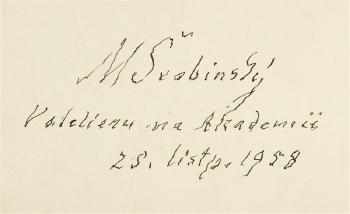 M Švabinský
V atelieru na Akademii
25. listp. 1958